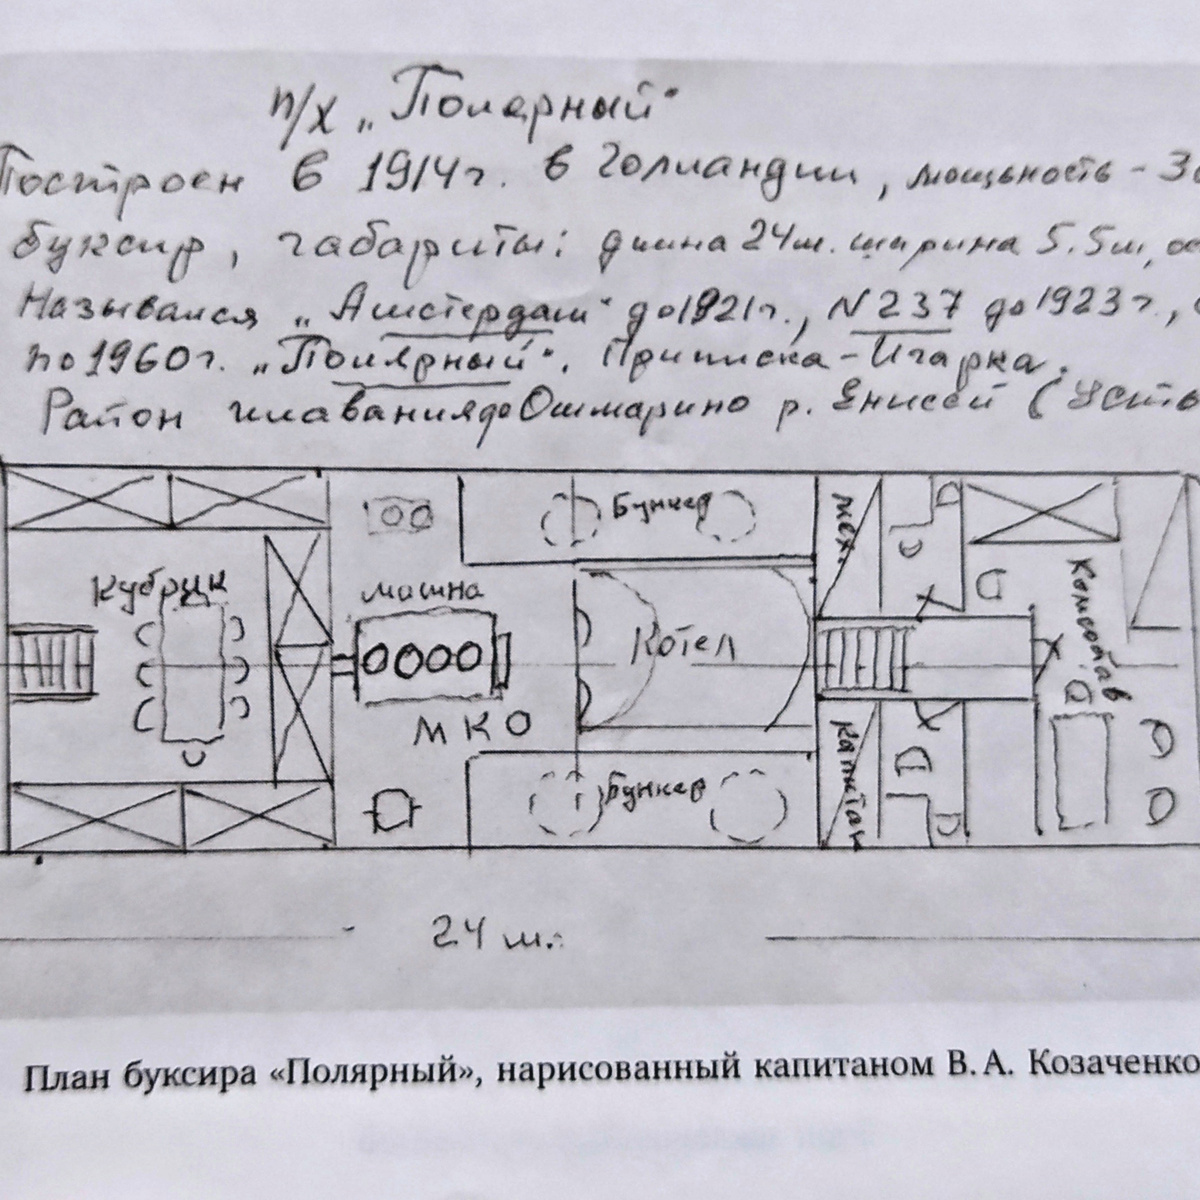 п/х „Полярный"
Построен в 1914г. в Голландии, мощьность - 30
буксир, габариты: длина 24м. ширина 5.5м, ос
Назывался „Амстердам" до 1921г., N 237 до 1923г.,
по 1960г. „Полярный". Приписка - Игарка.
Район плавания до Ошмарино р. Енисей (Усть
Бункер
мех
Кубрик
машина
Комсостав
Котел
МКО
капитан
Бункер
24 м.
План буксира «Полярный», нарисованный капитаном В. А. Козаченко